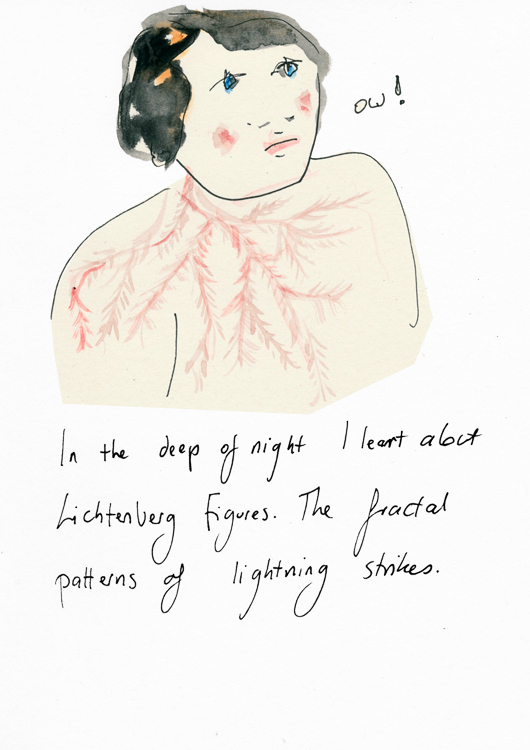 ow!
In the deep of night I learnt about
Lichtenberg Figures. The fractal
patterns of lightning strikes.